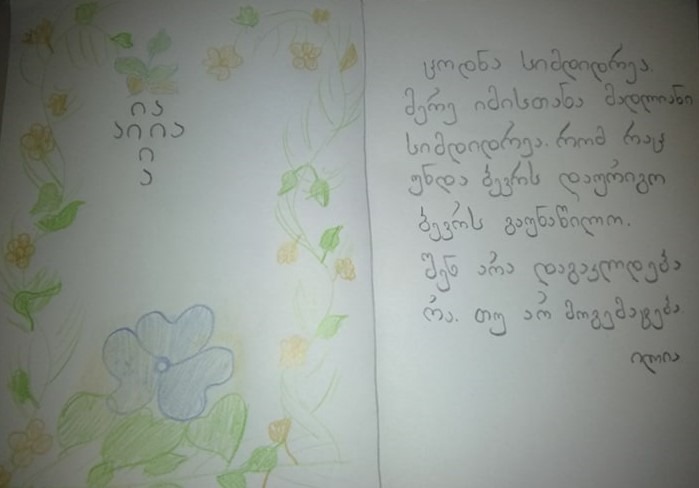 ია
აი ია
ი
ა
ცოდნა სიმდიდრეა.
მერე იმისთანა მადლიანი
სიმდიდრეა. რომ რაც
უნდა ბევრს დაურიგო
ბევრს გაუნაწილო.
შენ არა დაგაკლდება
რა. თუ არ მოგემატება
ილია